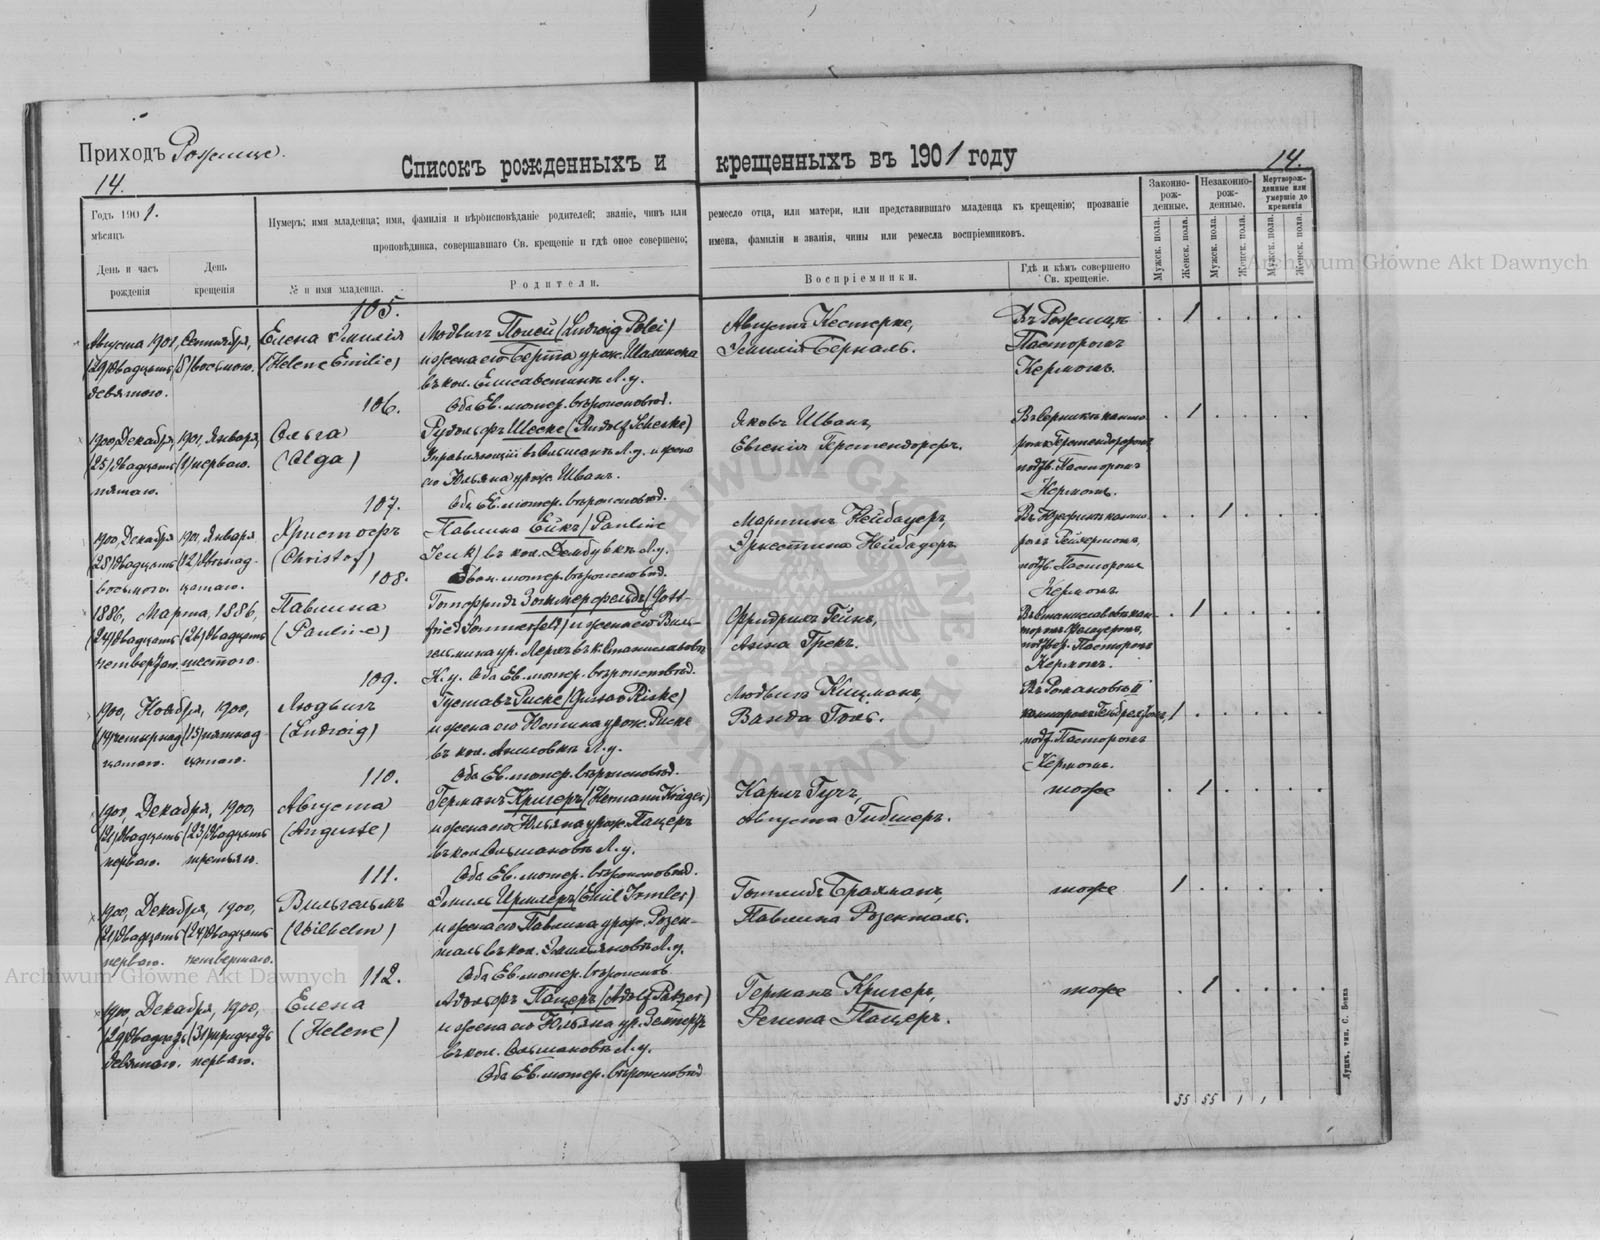 Приходъ Рожище.
Списокъ рожденныхъ и крещенныхъ въ 1901 году
14.
14.
Годъ 1901.
мѣсяцъ
День и часъ рожденія
День крещенія
Нумеръ; имя младенца; имя, фамилія и вѣроисповѣданіе родителей; званіе, чинъ или ремесло отца, или матери, или представившаго младенца къ крещенію; прозваніе
проповѣдника, совершавшаго Св. крещеніе и гдѣ оное совершено; имена, фамиліи и званія, чины или ремесла воспріемниковъ.
№ и имя младенца.
Родители.
Воспріемники.
Гдѣ и кѣмъ совершено Св. крещеніе.
Законно-рожденные.
Незаконно-рожденные.
Мертворожденные или умершіе до крещенія
Мужск. пола.
Женск. пола.
Мужск. пола.
Женск. пола.
Мужск. пола.
Женск. пола.
105.
Августа 1901, Сентября,
(29) двадцать (8) восьмого.
девятого.
Елена Эмилія
(Helene Emilie)
Людвигъ Полей (Ludwig Polei)
и жена его Берта урож.
въ кол. Елисаветинъ Л. у.
Оба Ев. лютер. вѣроисповѣд.
Августъ Кестерке,
Эмилія Берналь.
Въ Рожищѣ
Пасторомъ
Кермомъ.
1
106.
1900, Декабря, 1901, Января,
(25) двадцать (1) перваго.
пятаго.
Ольга
(Olga)
Рудольфъ Шеске (Rudolf Scheske)
Управляющій въ Ольшанкѣ Л. у. и жена
его Юльяна урож. Шванъ.
Оба Ев. лютер. вѣроисповѣд.
Яковъ Шванъ,
Евгенія
канто-
подтв. Пасторомъ
Кермомъ.
1
107.
1900, Декабря 1901, Января
(28) двадцать (12) двѣнад-
восьмого. цатаго.
Христофъ
(Christof)
Павлина Ейкъ (Pauline
въ кол. Дембувкѣ Л. у.
Еван. лютер. вѣроисповѣд.
Мартинъ Нейбауеръ,
Эрнестина Нейбауеръ
Въ Юзефинѣ канто-
подтв. Пасторомъ
Кермомъ.
1
108.
1886, Марта, 1886,
(24) двадцать (26) двадцать
четвертаго. шестого.
Павлина
(Pauline)
Готфридъ Зоммерфельдъ (Gott-
fried Sommerfeld) и жена его Виль-
гельмина ур. Лерхъ въ к. Станиславовкѣ
К. у. Оба Ев. лютер. вѣроисповѣд.
Фридрихъ Гейнъ,
Анна Грекъ.
Въ Станиславовкѣ кан-
подтвер. Пасторомъ
Кермомъ.
1
109.
1900, Ноября, 1900,
(14) четырнад (15) пятнад-
цатаго. цатаго.
Людвигъ
(Ludwig)
Густавъ Риске (Gustav Riske)
и жена его Юстина урож. Риске
въ кол. Л. у.
Оба Ев. лютер. вѣроисповѣд.
Людвигъ Кицманъ,
Ванда Гонъ.
Въ Романовкѣ II
канторомъ
подтв. Пасторомъ
Кермомъ.
1
110.
1900, Декабря, 1900,
(21) двадцать (23) двадцать
перваго. третьяго.
Августа
(Auguste)
Германъ Кригеръ (Hermann Krüger)
и жена его Юльяна урож. Пацеръ
въ кол. Ольшановкѣ Л. у.
Оба Ев. лютер. вѣроисповѣд.
Карлъ Гучъ,
Августа Гибшеръ.
тоже
1
111.
1900, Декабря, 1900,
(21) двадцать (24) двадцать
перваго. четвертаго.
Вильгельмъ
(Wilhelm)
Эмиль Ирмлеръ (Emil Irmler)
и жена его Павлина урож. Розен-
таль въ кол. Эмильяновкѣ Л. у.
Оба Ев. лютер. вѣроиспов.
Готлибъ Брахманъ,
Павлина Розенталь.
тоже
1
112.
1900, Декабря, 1900,
(29) двадцать (31) тридцать
девятаго. перваго.
Елена
(Helene)
Адольфъ Пацеръ (Adolf Patzer)
и жена его Юльяна ур.
въ кол. Ольшановкѣ Л. у.
Оба Ев. лютер. вѣроисповѣд
Германъ Кригеръ,
Регина Пацеръ.
тоже
1
55 55 1 1
Луцкъ, тип. С. Бокка
Archiwum Główne Akt Dawnych
Archiwum Główne Akt Dawnych
ARCHIWUM GŁÓWNE AKT DAWNYCH